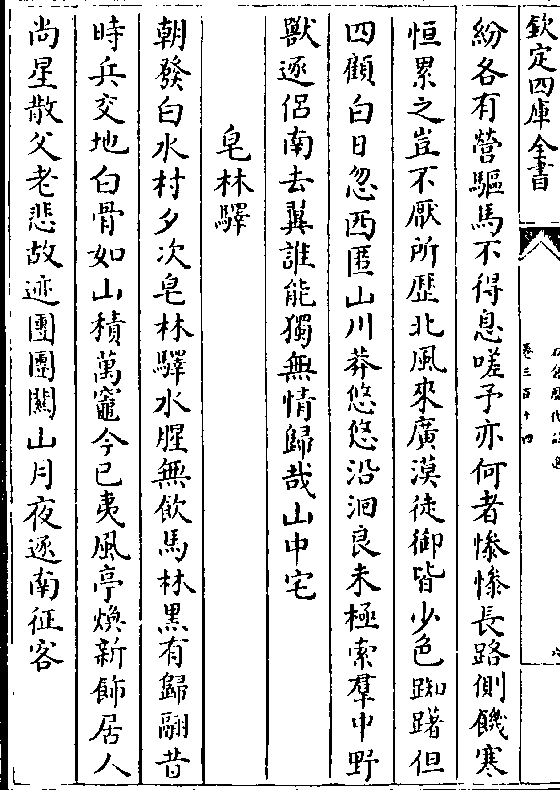 欽定四庫全書
卷三百十四
紛各有營驅馬不得息嗟予亦何者慘慘長路側饑寒
恒累之豈不厭所歴北風來廣漠徒御皆少色踟躇但
四顧白日忽西匿山川莽悠悠沿洄良未極索羣中野
獸逐侣南去翼誰能獨無情歸哉山中宅
皂林驛
朝發白水村夕次皂林驛水腥無飲馬林黒有歸翮昔
時兵交地白骨如山積萬竈今已夷風亭煥新飾居人
尚星散父老悲故迹團團關山月夜逐南征客